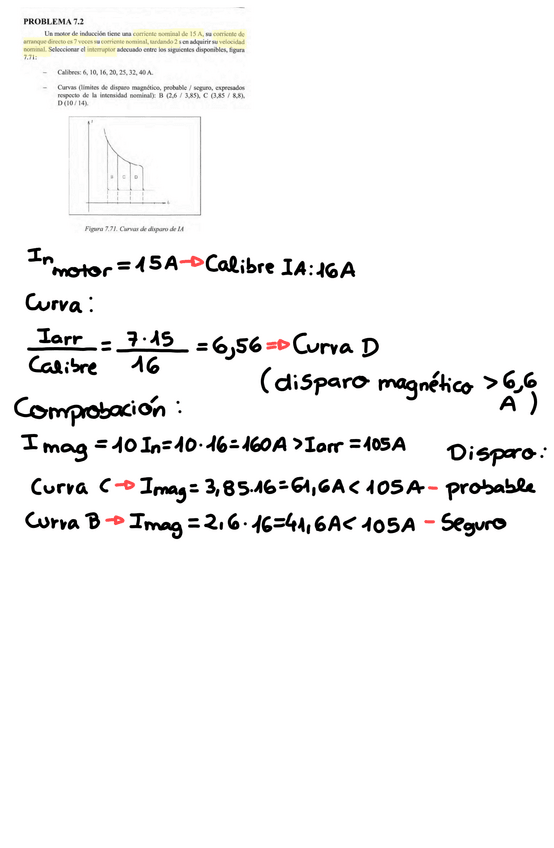 PROBLEMA 7.2
Un motor de inducción tiene una corriente nominal de 15 A, su corriente de
arranque directo es 7 veces su corriente nominal, tardando 2 s en adquirir su velocidad
nominal. Seleccionar el interruptor adecuado entre los siguientes disponibles, figura
7.71:
– Calibres: 6, 10, 16, 20, 25, 32, 40 A.
– Curvas (límites de disparo magnético, probable / seguro, expresados
respecto de la intensidad nominal): B (2,6 / 3,85), C (3,85 / 8,8),
D (10 / 14).
B C D
Figura 7.71. Curvas de disparo de IA
In motor = 15A → Calibre IA: 16A
Curva:
Iarr / Calibre = 7·15 / 16 = 6,56 ⇒ Curva D
(disparo magnético > 6,6 A)
Comprobación:
Imag = 10 In = 10·16 = 160A > Iarr = 105A
Disparo:
Curva C → Imag = 3,85·16 = 61,6A < 105A - probable
Curva B → Imag = 2,6·16 = 41,6A < 105A - Seguro